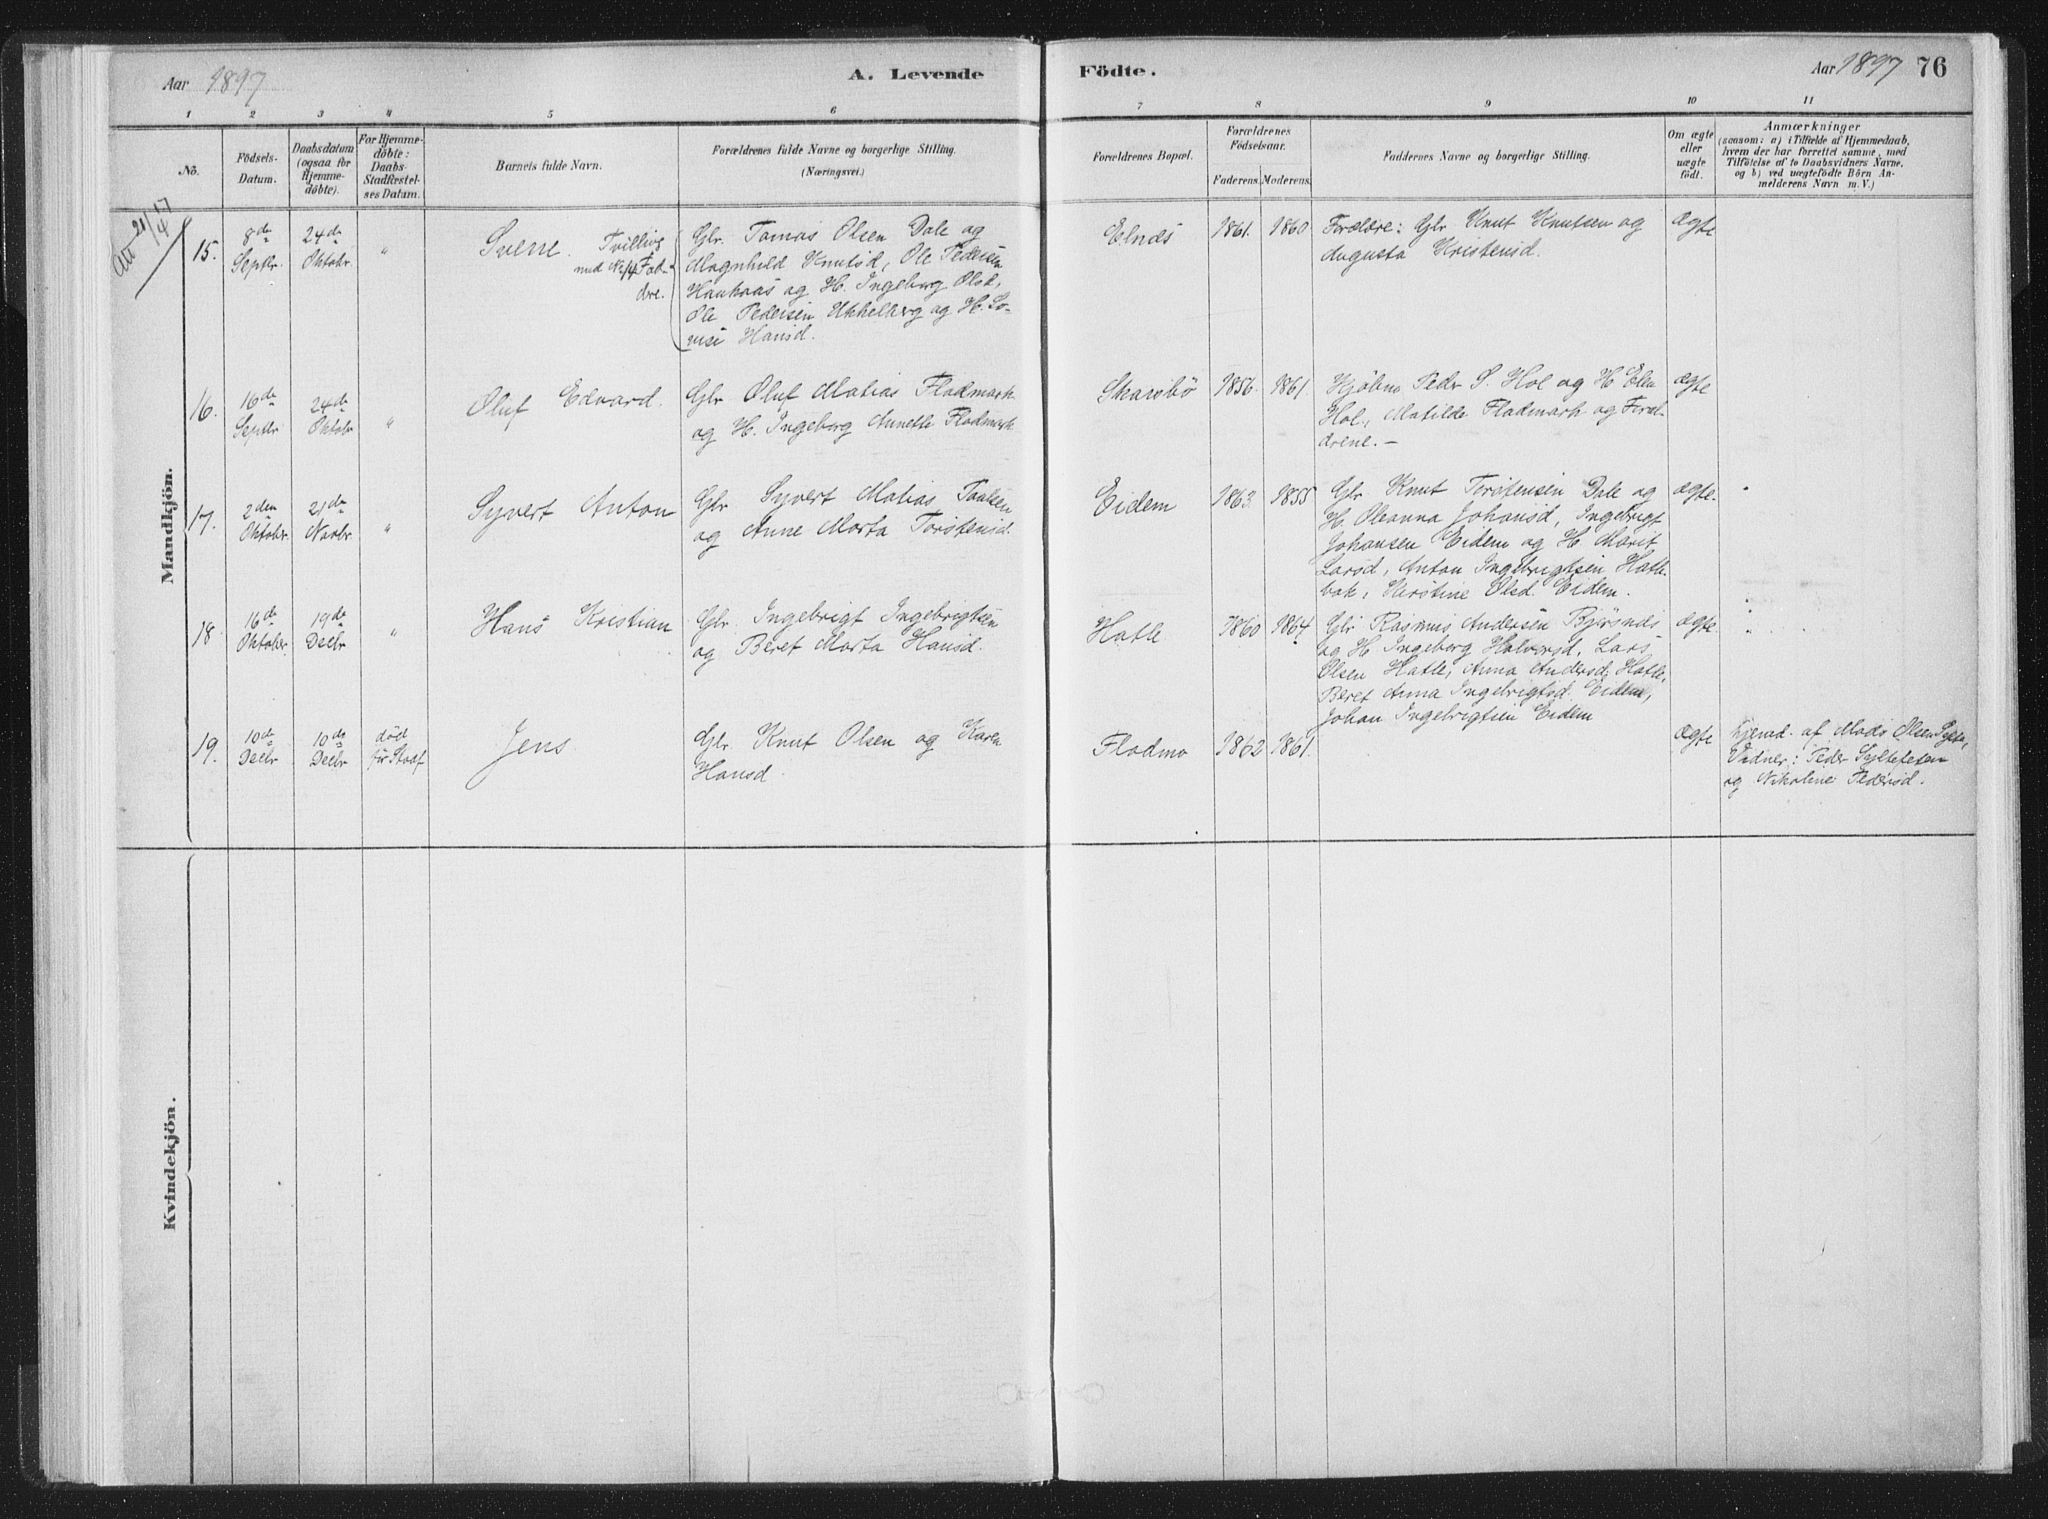 Aar 1897
A. Levende
Födte.
Aar 1897 76
1 2 3 4 5 6 7 8 9 10 11
No.
Födsels-
Datum.
Daabsdatum
(ogsaa for
Hjemme-
döbte).
For Hjemme-
döbte:
Daabs-
Stadfæstel-
ses Datum.
Barnets fulde Navn.
Forældrenes fulde Navne og borgerlige Stilling.
(Næringsvei.)
Forældrenes Bopæl.
Forældrenes
Födselsaar.
Faderens. Moderens.
Faddernes Navne og borgerlige Stilling.
Om ægte
eller
uægte
födt.
Anmærkninger
(saasom: a) i Tilfælde af Hjemmedaab,
hvem der har forrettet samme, med
Tilföielse af to Daabsvidners Navne,
og b) ved uægtefödte Börn An-
melderens Navn m. V.)
Mandkjön.
Att 21/4 17
15.
8de
Septbr.
24de
Oktobr.
"
Sverre.
Tvilling
med No 14 Fad-
dere.
Gbr. Tomas Olsen Dale og
Magnhild Knutsd, Ole Pedersen
Haukaas og H. Ingeborg Olsd,
Ole Pedersen Ukkelberg og H. Lo-
vise Hansd.
Elnæs
1861. 1860
Forældre: Gbr Knut Knutsen og
Augusta Kristensd.
ægte
16.
16de
Septbr
24de
Oktobr
"
Oluf Edvard.
Gbr Oluf Matias Flodmark
og H. Ingeborg Annette Flodmark
Skarsbö
1856. 1861.
Kjöbm. Peder S. Hol og H. Elen
Hol, Matilde Flodmark og Foræl-
drene.-
ægte
17.
2den
Oktobr.
21de
Novbr.
"
Syvert Anton
Gbr Syvert Matias Paulsen
og Anne Marta Torstensd.
Eidem
1863. 1855
Gbr Knut Torstensen Dale og
H. Oleanna Johansd, Ingebrigt
Johansen Eidem og H. Marit
Larsd, Anton Ingebrigtsen Hatle-
bak, Kirstine Olsd. Eidem.
ægte.
18
16de
Oktober.
19de
Decbr
"
Hans Kristian
Gbr. Ingebrigt Ingebrigtsen
og Beret Marta Hansd.
Hatle
1860 1864
Gbr Rasmus Andersen Bjørsnæs
og H Ingeborg Halvorsd, Lars
Olsen Hatle, Anna Andersd. Hatle,
Beret Anna Ingebrigtsd. Eidem,
Johan Ingebrigtsen Eidem
ægte
19.
10de
Decbr
10de
Decbr
död
før Stadf
Jens
Gbr. Knut Olsen og Karen
Hansd.
Flodmo
1862. 1861.
ægte
Hjemd. af Mads Olsen Sylte,
Vidner: Peder Sylteteien
og Nikoline Pedersd.
Kvindekjön.